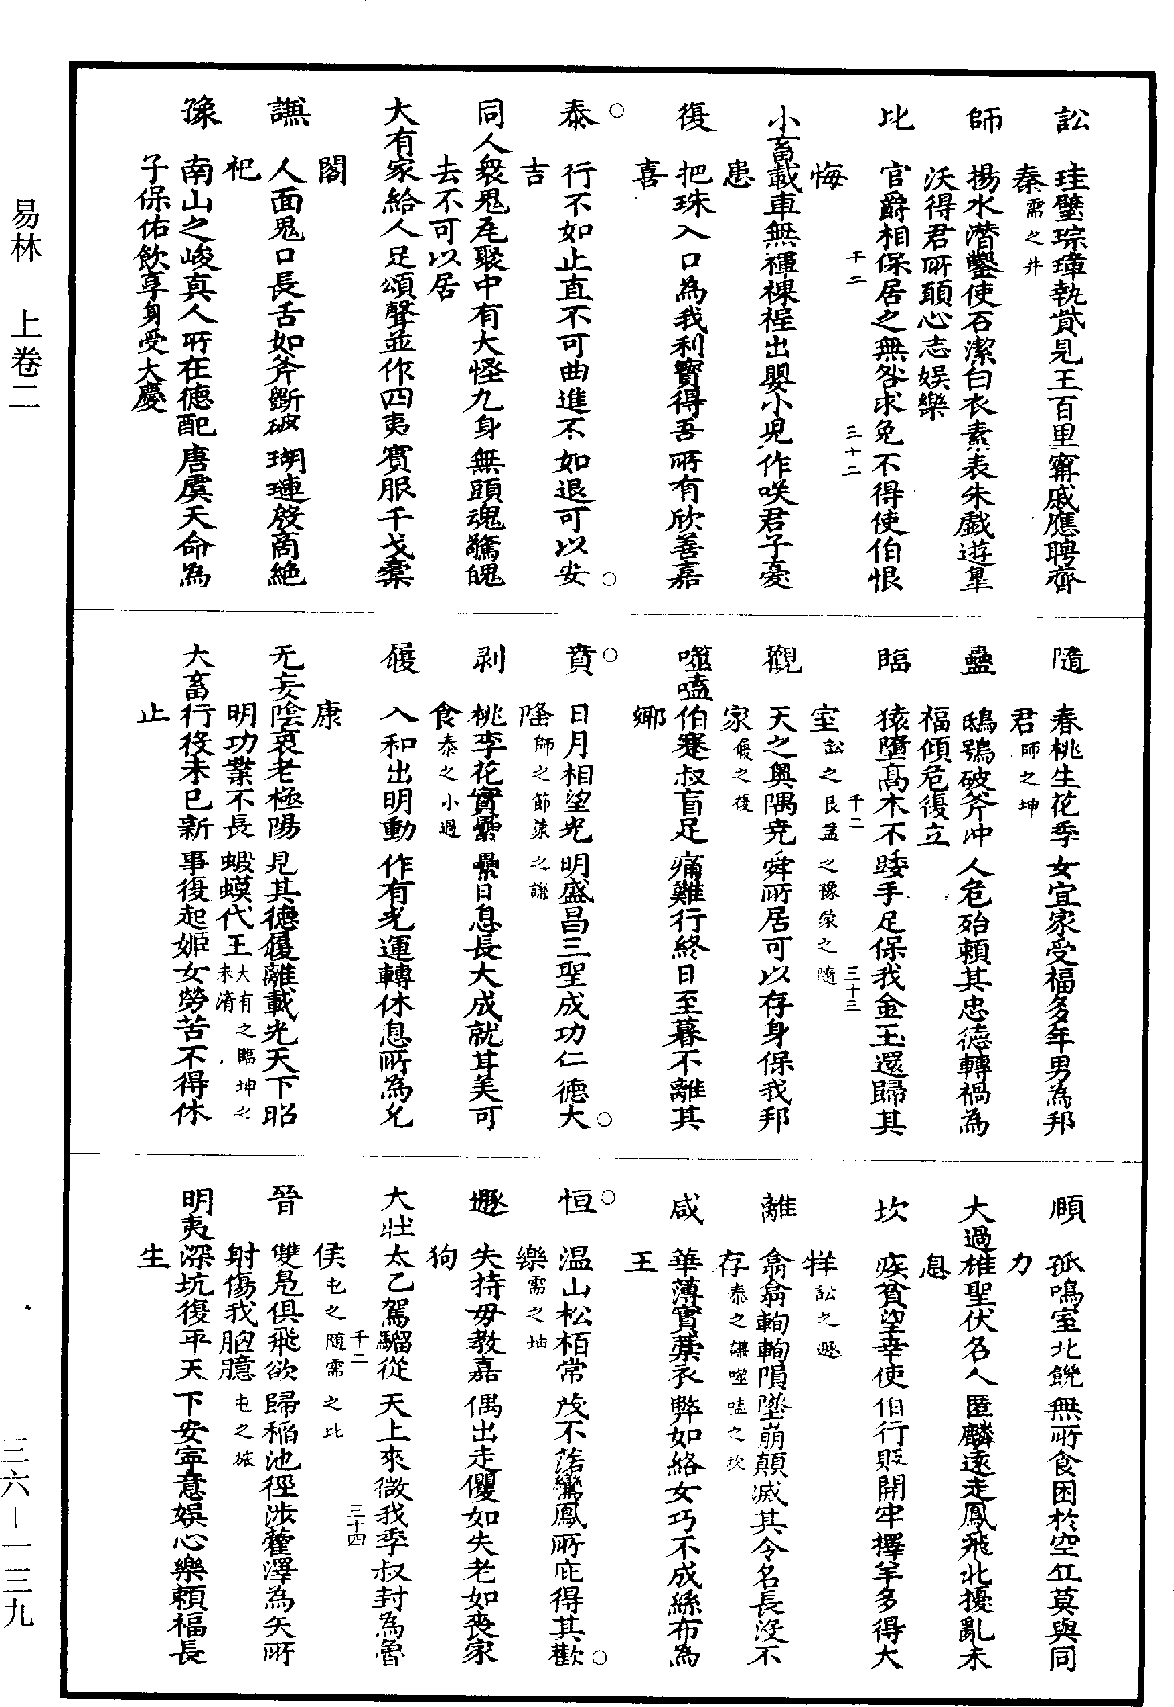 訟　珪璧琮璋執贄見王百里甯戚應聘齊
秦需之井
師　揚水潛鑿使石潔白衣素表朱戲遊臯
沃得君所願心志娛樂
比　官爵相保居之無咎求免不得使伯恨
悔
十二
三十二
小畜載車無褌裸裎出嬰小兒作咲君子憂
患
復　把珠入口為我利寶得吾所有欣善嘉
喜
○泰　行不如止直不可曲進不如退可以安○
吉
同人衆鬼瓦聚中有大怪九身無頭魂驚魄
去不可以居
大有家給人足頌聲並作四夷賓服干戈櫜
閣
謙　人面鬼口長舌如斧斷破瑚璉殷商絶
祀
豫　南山之峻真人所在德配唐虞天命為
子保佑飲享身受大慶
隨　春桃生花季女宜家受福多年男為邦
君師之坤
蠱　鴟鴞破斧冲人危殆賴其忠德轉禍為
福傾危復立
臨　猿墮高木不踒手足保我金玉還歸其
室訟之艮孟之豫蒙之隨
十二
三十三
觀　天之奧隅堯舜所居可以存身保我邦
家履之復
噬嗑伯蹇叔盲足痛難行終日至暮不離其
鄉
○賁　日月相望光明盛昌三聖成功仁德大○
隆師之節蒙之謙
剥　桃李花實纍纍日息長大成就甘美可
食泰之小過
復　入和出明動作有光運轉休息所為允
康
无妄陰衰老極陽見其德履離載光天下昭
明功業不長蝦蟆代王大有之臨坤之未濟
大畜行役未已新事復起姬女勞苦不得休
止
頤　孤鳴室北饑無所食困於空丘莫與同
力
大過雄聖伏名人匿麟遠走鳳飛北擾亂未
息
坎　疾貧望幸使伯行販開牢擇羊多得大
牂訟之遯
離　翕翕輷輷隕墜崩顛滅其令名長沒不
存泰之謙噬嗑之坎
咸　華薄實槁衣弊如絡女巧不成絲布為
王
○恒　温山松栢常茂不落鸞鳳所庇得其歡○
樂需之坤
遯　失持毋教嘉偶出走儸如失老如喪家
狗
大壯太乙駕騮從天上來徵我季叔封為魯
侯屯之隨需之比
十二
三十四
晉　雙鳧俱飛欲歸稻池徑涉藿澤為矢所
射傷我胸臆屯之旅
明夷深坑復平天下安寧意娛心樂賴福長
生
易林　上卷二
三六—一三九